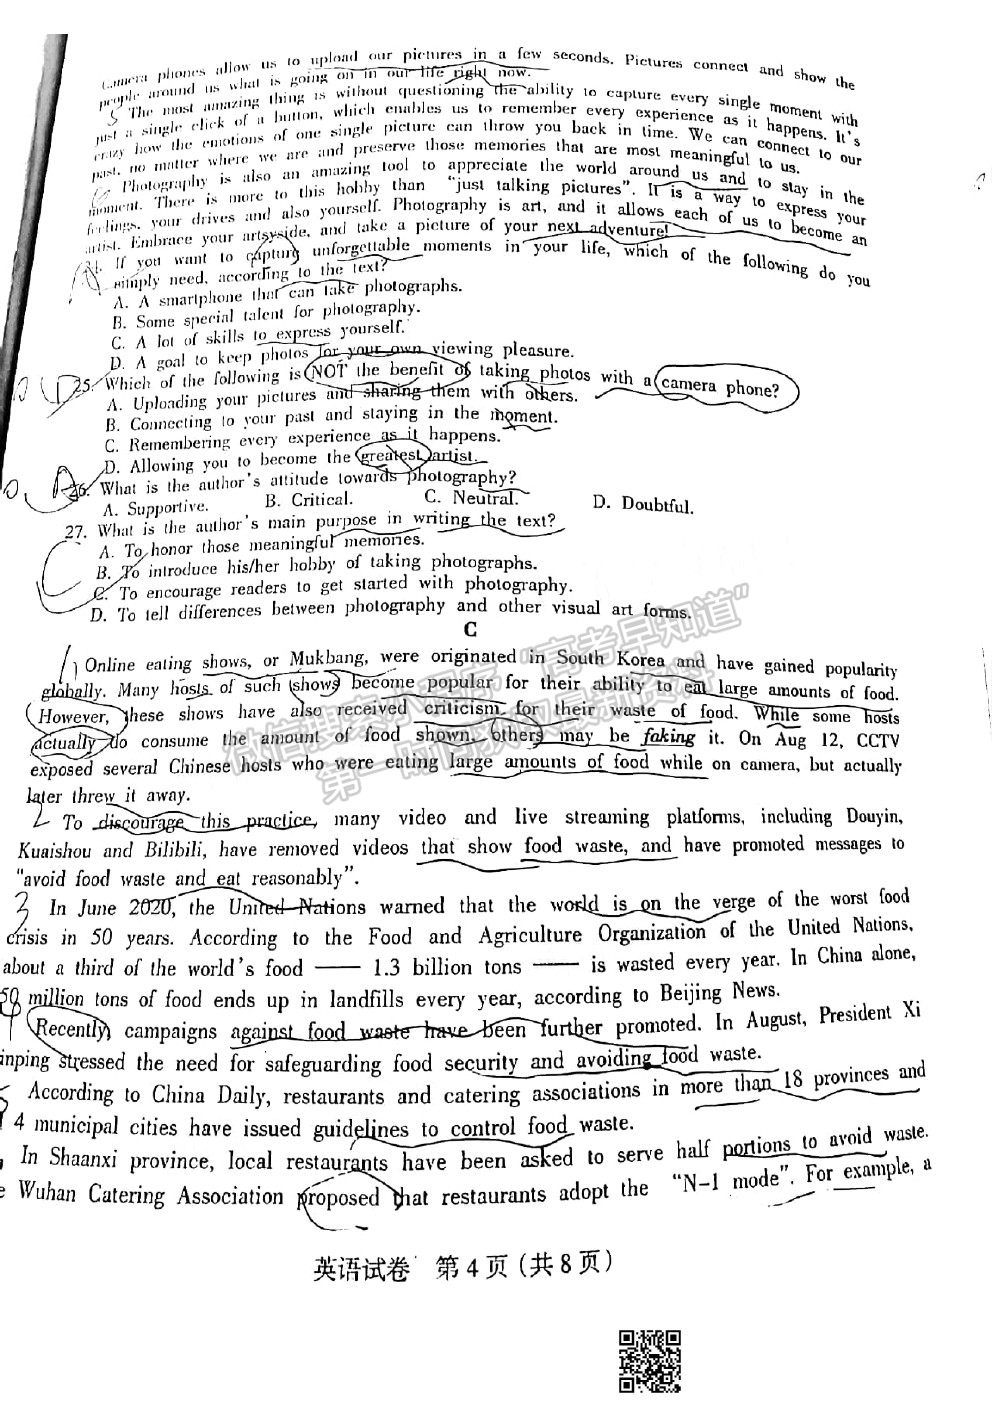 Camera phones allow us to upload our pictures in a few seconds. Pictures connect and show the
people around us what is going on in our life right now.
The most amazing thing is without questioning the ability to capture every single moment with
just a single click of a button, which enables us to remember every experience as it happens. It's
crazy how the emotions of one single picture can throw you back in time. We can connect to our
past, no matter where we are and preserve those memories that are most meaningful to us.
Photography is also an amazing tool to appreciate the world around us and to stay in the
moment. There is more to this hobby than "just talking pictures". It is a way to express your
feelings, your drives and also yourself. Photography is art, and it allows each of us to become an
artist. Embrace your artsyside, and take a picture of your next adventure!
24. If you want to capture unforgettable moments in your life, which of the following do you
simply need, according to the text?
A. A smartphone that can take photographs.
B. Some special talent for photography.
C. A lot of skills to express yourself.
D. A goal to keep photos for your own viewing pleasure.
D 25. Which of the following is NOT the benefit of taking photos with a camera phone?
A. Uploading your pictures and sharing them with others.
B. Connecting to your past and staying in the moment.
C. Remembering every experience as it happens.
D. Allowing you to become the greatest artist.
A 26. What is the author's attitude towards photography?
A. Supportive. B. Critical. C. Neutral. D. Doubtful.
27. What is the author's main purpose in writing the text?
A. To honor those meaningful memories.
B. To introduce his/her hobby of taking photographs.
C. To encourage readers to get started with photography.
D. To tell differences between photography and other visual art forms.
C
1 Online eating shows, or Mukbang, were originated in South Korea and have gained popularity
globally. Many hosts of such shows become popular for their ability to eat large amounts of food.
However, these shows have also received criticism for their waste of food. While some hosts
actually do consume the amount of food shown, others may be faking it. On Aug 12, CCTV
exposed several Chinese hosts who were eating large amounts of food while on camera, but actually
later threw it away.
2 To discourage this practice, many video and live streaming platforms, including Douyin,
Kuaishou and Bilibili, have removed videos that show food waste, and have promoted messages to
"avoid food waste and eat reasonably".
3 In June 2020, the United Nations warned that the world is on the verge of the worst food
crisis in 50 years. According to the Food and Agriculture Organization of the United Nations,
about a third of the world's food —— 1.3 billion tons —— is wasted every year. In China alone,
50 million tons of food ends up in landfills every year, according to Beijing News.
4 Recently, campaigns against food waste have been further promoted. In August, President Xi
inping stressed the need for safeguarding food security and avoiding food waste.
5 According to China Daily, restaurants and catering associations in more than 18 provinces and
4 municipal cities have issued guidelines to control food waste.
In Shaanxi province, local restaurants have been asked to serve half portions to avoid waste.
e Wuhan Catering Association proposed that restaurants adopt the "N-1 mode". For example, a
英语试卷 第4页(共8页)